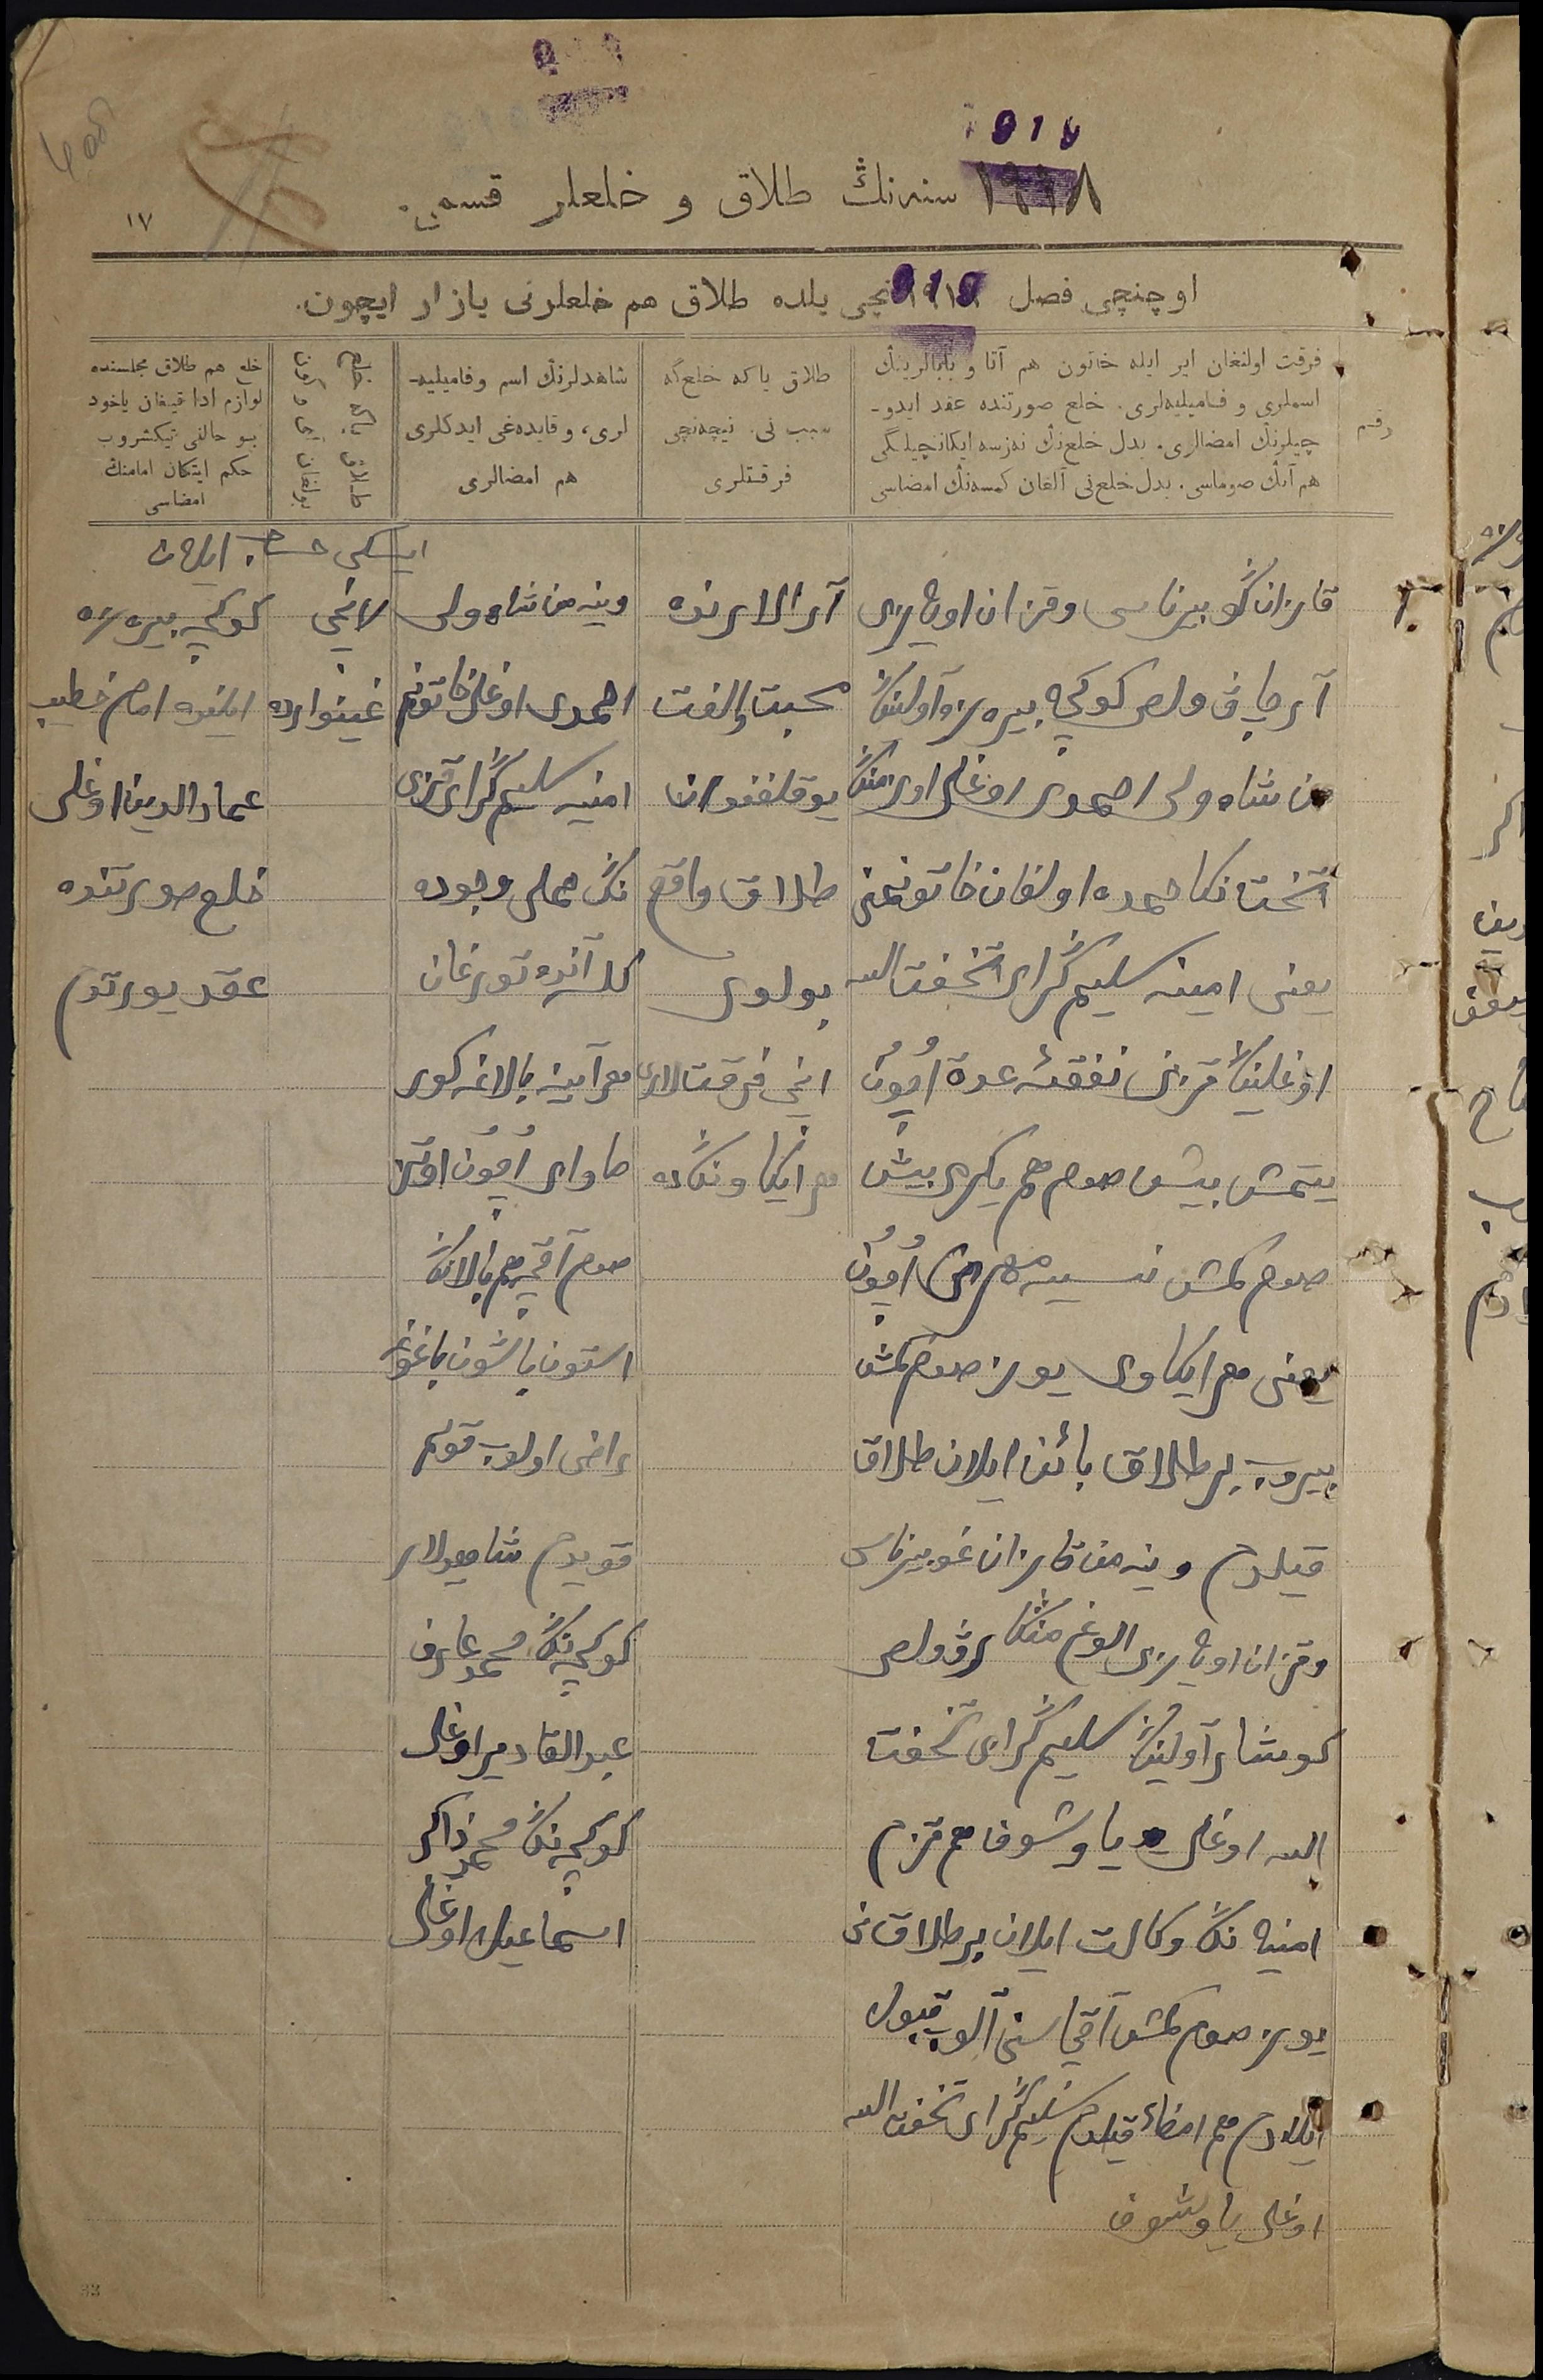 1919
١٩١٨ سنه‌نڭ طلاق و خلعلر قسمی.
١٧
اوچنچی فصل 919 نچی یلده طلاق هم خلعلرنی یازار ایچون.
رقم
فرقت اولنغان ایر ایله خاتون هم آتا و بابالرینڭ
اسملری و فامیلیه‌لری. خلع صورتنده عقد ایدو-
چیلرنڭ امضالری. بدل خلع‌نڭ نه‌رسه ایکانچیلگی
هم آنڭ صوماسی. بدل خلع‌نی آلغان کمسه‌نڭ امضاسی
طلاق یا که خلع‌گه
سبب نی. نیچه‌نچی
فرقتلری
شاهدلرنڭ اسم و فامیلیه-
لری، و قایده‌غی ایدکلری
هم امضالری
خلع هم طلاق مجلسنده
لوازم ادا قیغان یاخود
بو حالنی تیکشروب
حکم ایتکان امامنڭ
امضاسی
ایسکی حساب ایلان
قازان گوبیرناسی و قزان اویازی
آرچا ولص کوکچه بیره‌زه آولینڭ
من شاه ولی احمدی اوغلی اوزمنڭ
تخت نکاحمده اولغان خاتونمنی
یعنی امینه سلیم گرای تخفت الله
اوغلینڭ قزنی نفقهٔ عدة اُچون
یتمش بیش صوم هم یکرمی بیش
صوم کمش نسیه مهری اُچون
یعنی هر ایکاوی یوز صوم کمش
بیروب بر طلاق بائن ایلان طلاق
قیلدم وینه من قازان غوبیرناسی
و قزان اویازی الوغ منگار ولص
کوشار آولینڭ سلیم گرای تخفت
الله اوغلی یاوشوف هم قزم
امنیه نڭ وکالت ایلان بر طلاق نی
یوز صوم کمش آقچاسنی آلوب قبول
ایلادم هم امضاء قیلدم سلیم گرای تخفت الله
اوغلی یاوشوف
آرالارنده
محبت والفت
یوقلغندان
طلاق واقع
بولدی
انچی فرقتلاری
هر ایکاونگده
وینه من شاه ولی
احمدی اوغلی خاتونم
امنیه سلیم گرای قزی
نڭ حملی وجوده
کلـ آنده تورغان
هم آنینه بالاغه کوی
صاوای اُچون اوتز
صوم آقچه هم بالانڭ
استون باشون باغوغه
راضی اولوب قولم
قویدم شاهدلار
کوکچه نڭ محمد عارف
عبد القادیر اوغلی
کوکچه نڭ محمد ذاکر
اسماعیل اوغلی
غینوارده
کوکچه بیره‌زه
ایلنده امام خطیب
عماد الدین اوغلی
خلع صورتنده
عقد یورتدم